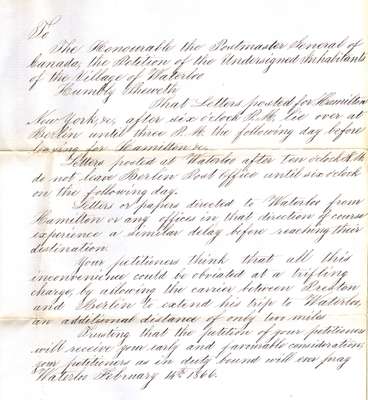 To
The Honourable the Postmaster General of
Canada, the Petition of the Undersigned Inhabitants
of the Village of Waterloo
Humbly Sheweth
That Letters posted for Hamilton
New York, &c, after six o'clock P.M. lie over at
Berlin until three P.M. the following day before
leaving for Hamilton &c.
Letters posted at Waterloo after Ten o'clock A.M.
do not leave Berlin Post Office until six o'clock
on the following day.
Letters or papers directed to Waterloo from
Hamilton or any offices in that direction of course
experience a similar delay before reaching their
destination.
Your petitioners think that all this
inconvenience could be obviated at a trifling
charge, by allowing the carrier between Preston
and Berlin to extend his trip to Waterloo,
an additional distance of only two miles
Trusting that the petition of your petitioners
will receive your early and favourable consideration,
your petitioners as in duty bound will ever pray
Waterloo February 14th 1866.